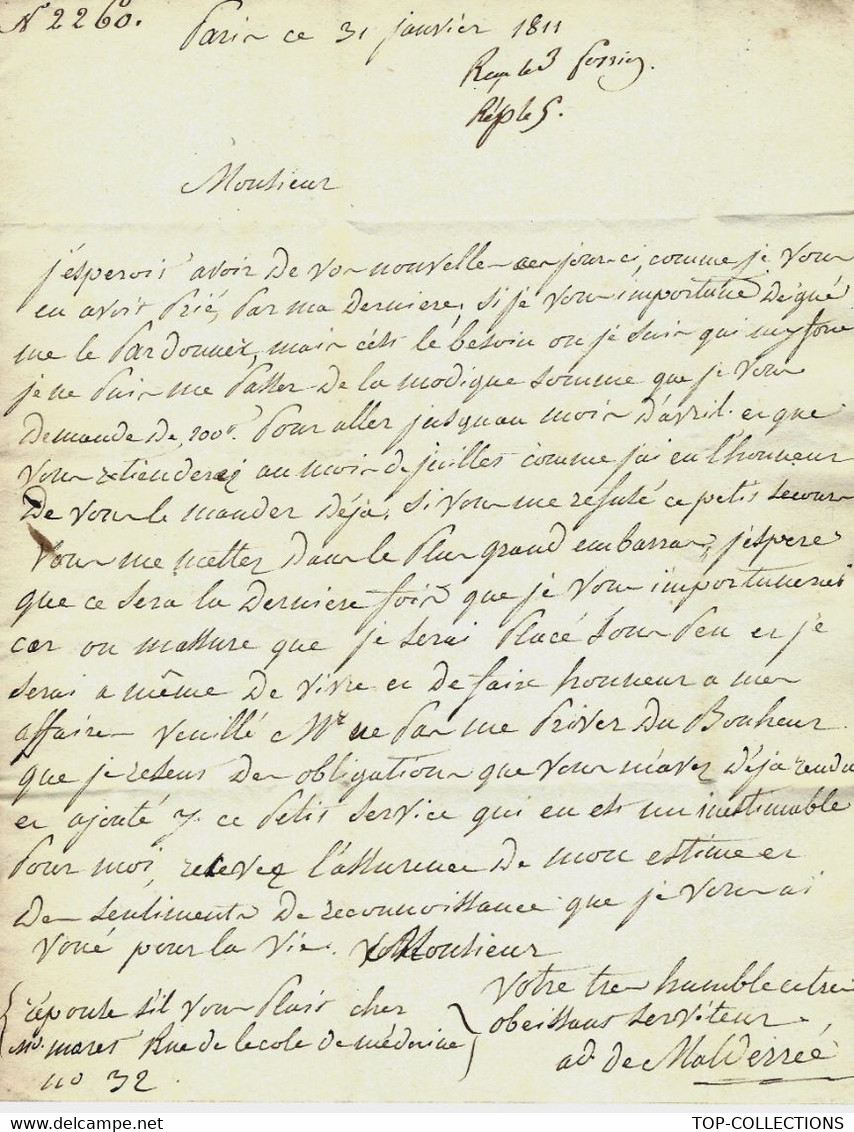 N° 2260.
Paris ce 31 janvier 1811
Reçu le 3
Rép le 5.
Monsieur
j'esperois avoir de vos nouvelles ces jours ci, comme je vous
en avoit prié, par ma derniere, si je vous importune deigné
me le pardonner, mais c'est le besoin ou je suis qui my force
je ne puis me passer de la modique somme que je vous
demande de, 200#. pour aller jusquau mois d'avril. et que
vous retienderez au mois de juillet comme jai eu l'honneur
de vous le mander déja. si vous me refusé ce petit secours
vous me metter dans le plus grand embarras, j'espere
que ce sera la derniere fois que je vous importunerai
car on massure que je serai placé sous peu et je
serai a même de vivre et de faire honneur a mes
affaires veuillé Mr ne pas me priver du bonheur
que je resens des obligations que vous m'avez déja rendu
et ajouté y ce petit service qui en est un inestimable
pour moi, recevez l'assurence de mon estime et
des sentiments de reconnoissance que je vous ai
voué pour la vie. Monsieur
votre tres humble et tres
obeissant serviteur
ad. de Malderreé
réponse s'il vous plait cher
md. mares Rue de lecole de médecine
no 32
TOP-COLLECTIONS